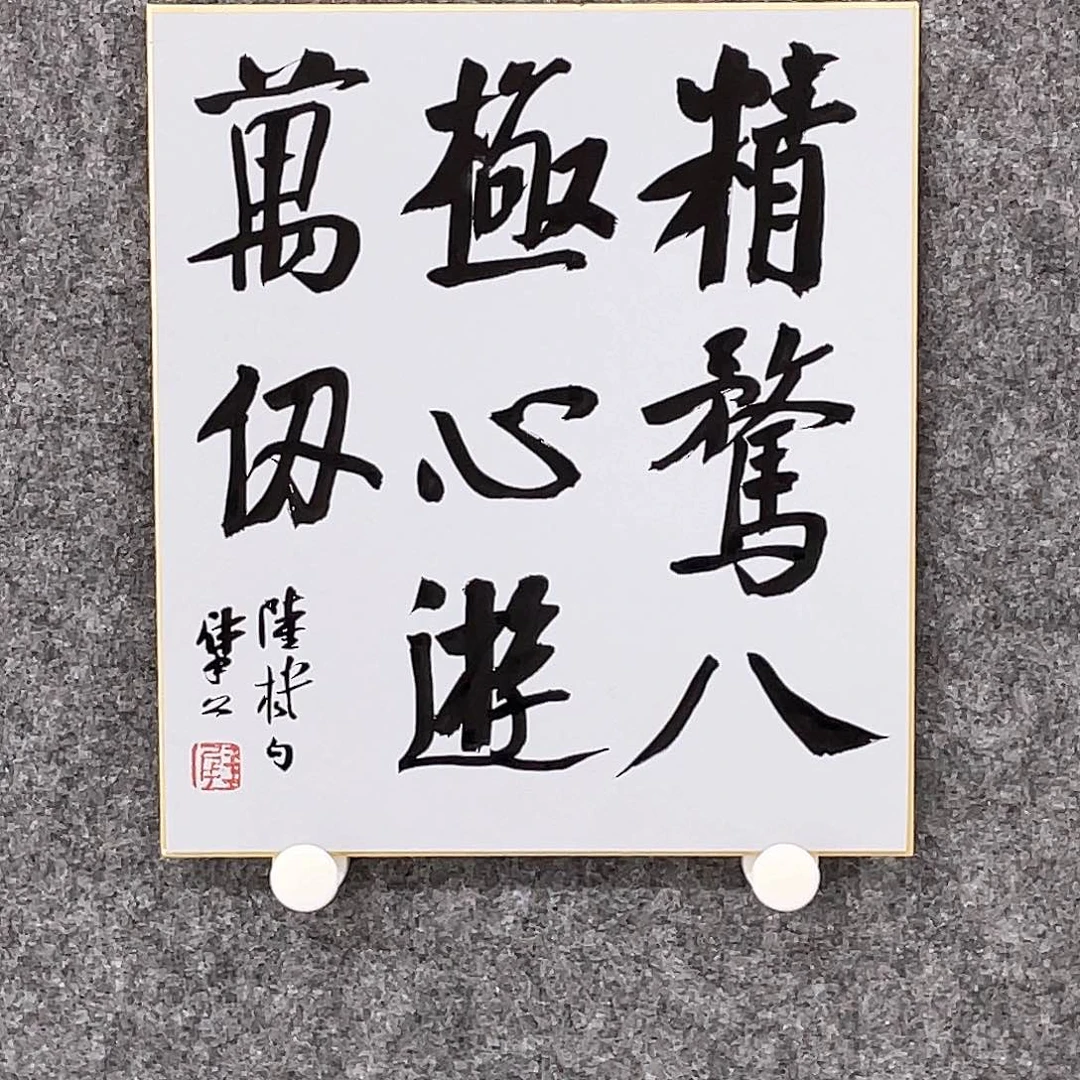 精騖八
極心遊
萬仞
陸機句